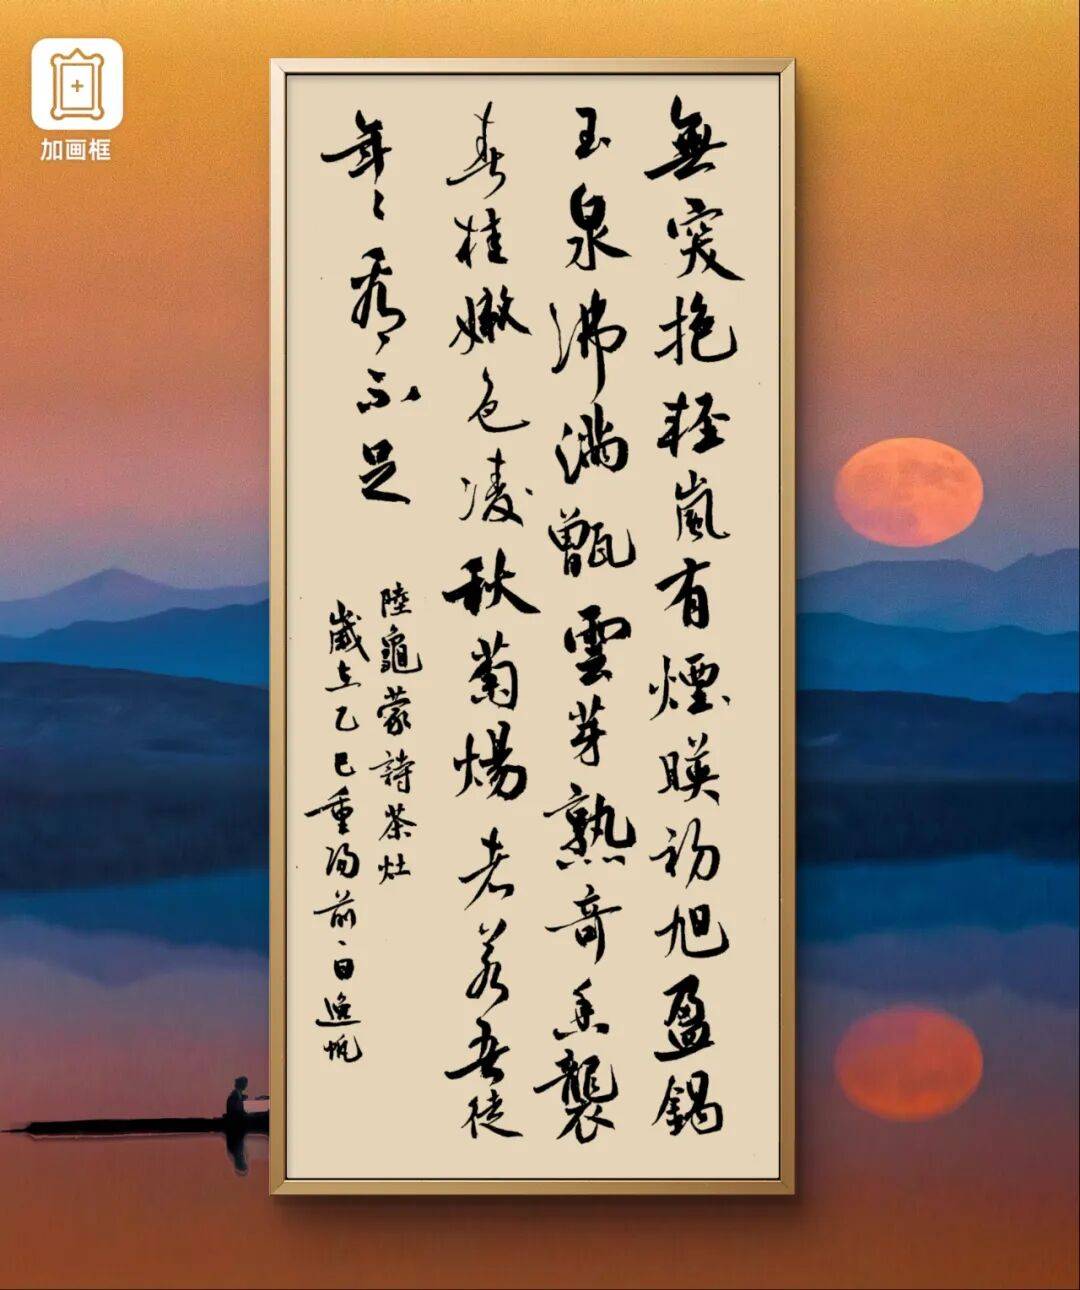 加画框
無突抱輕嵐有煙暎初旭盈鍋
玉泉沸滿甑雲芽熟奇香襲
春桂嫩色凌秋菊煬者若吾徒
年〻看不足
陸龜蒙詩茶灶
歲在乙巳重陽前一日逸帆